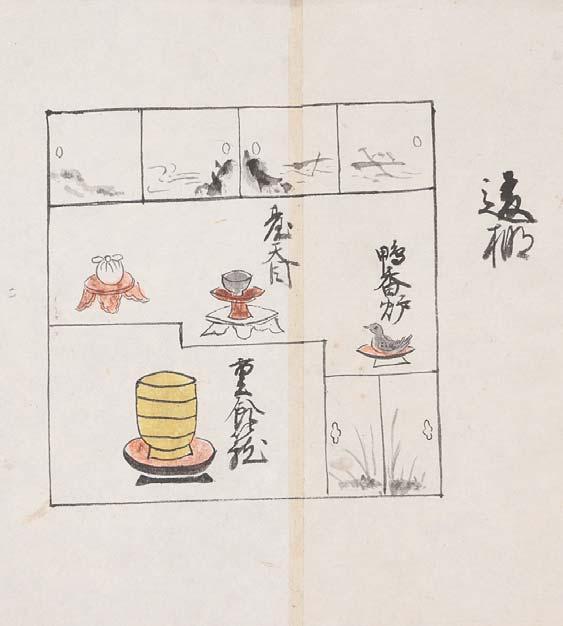 違棚
鴨香炉
臺天目
重食籠